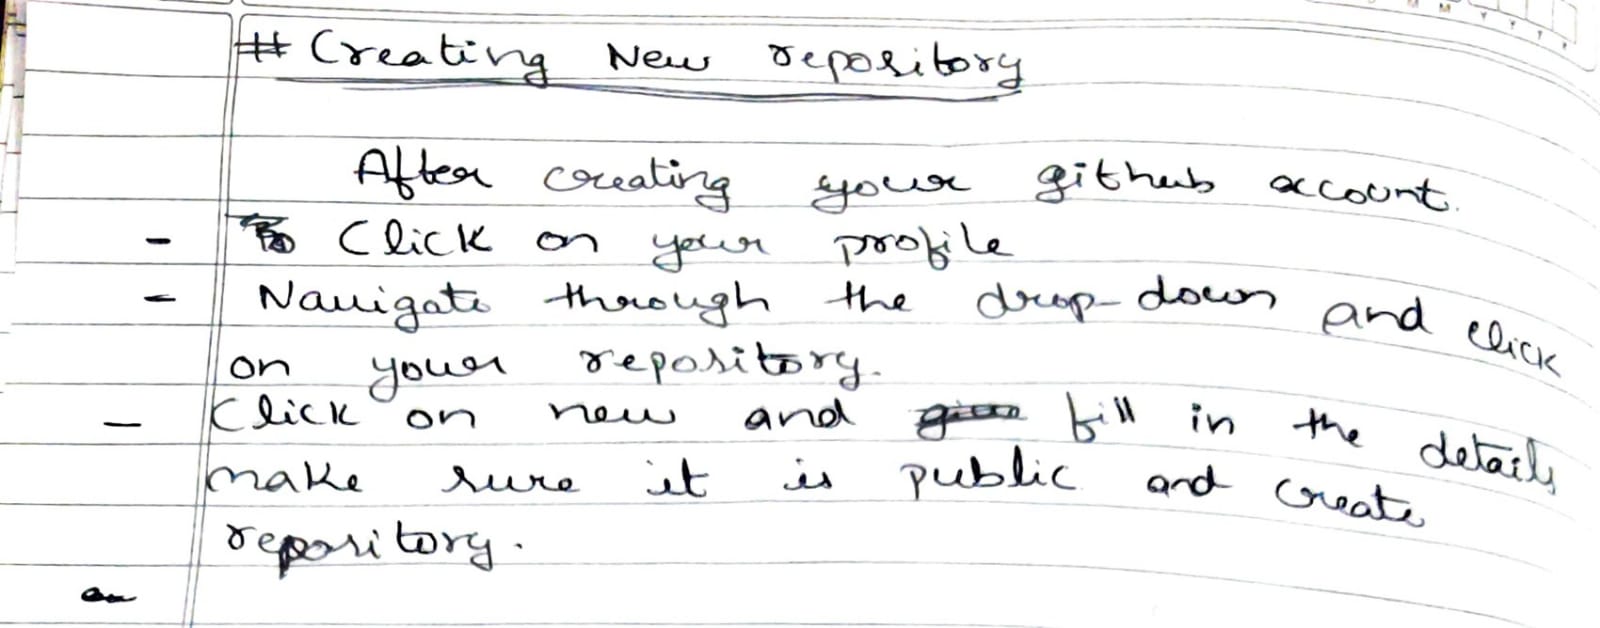 # Creating New repository
After creating your github account.
- Click on your profile
- Navigate through the drop-down and click
on your repository.
- Click on new and fill in the details
make sure it is public and create
repository.